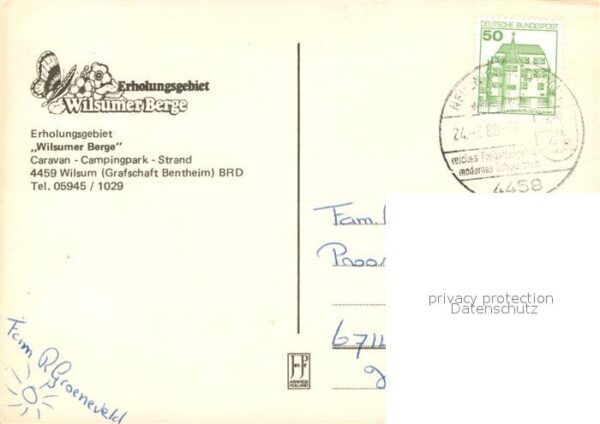 Erholungsgebiet
Wilsumer Berge
Erholungsgebiet
„Wilsumer Berge"
Caravan - Campingpark - Strand
4459 Wilsum (Grafschaft Bentheim) BRD
Tel. 05945 / 1029
DEUTSCHE BUNDESPOST
50
24.-7.80
reiches Freizeitangebot
modernes
4458
Fam
6711
privacy protection
Datenschutz
Fam R. Groeneveld
JosPé
ARNHEM
HOLLAND